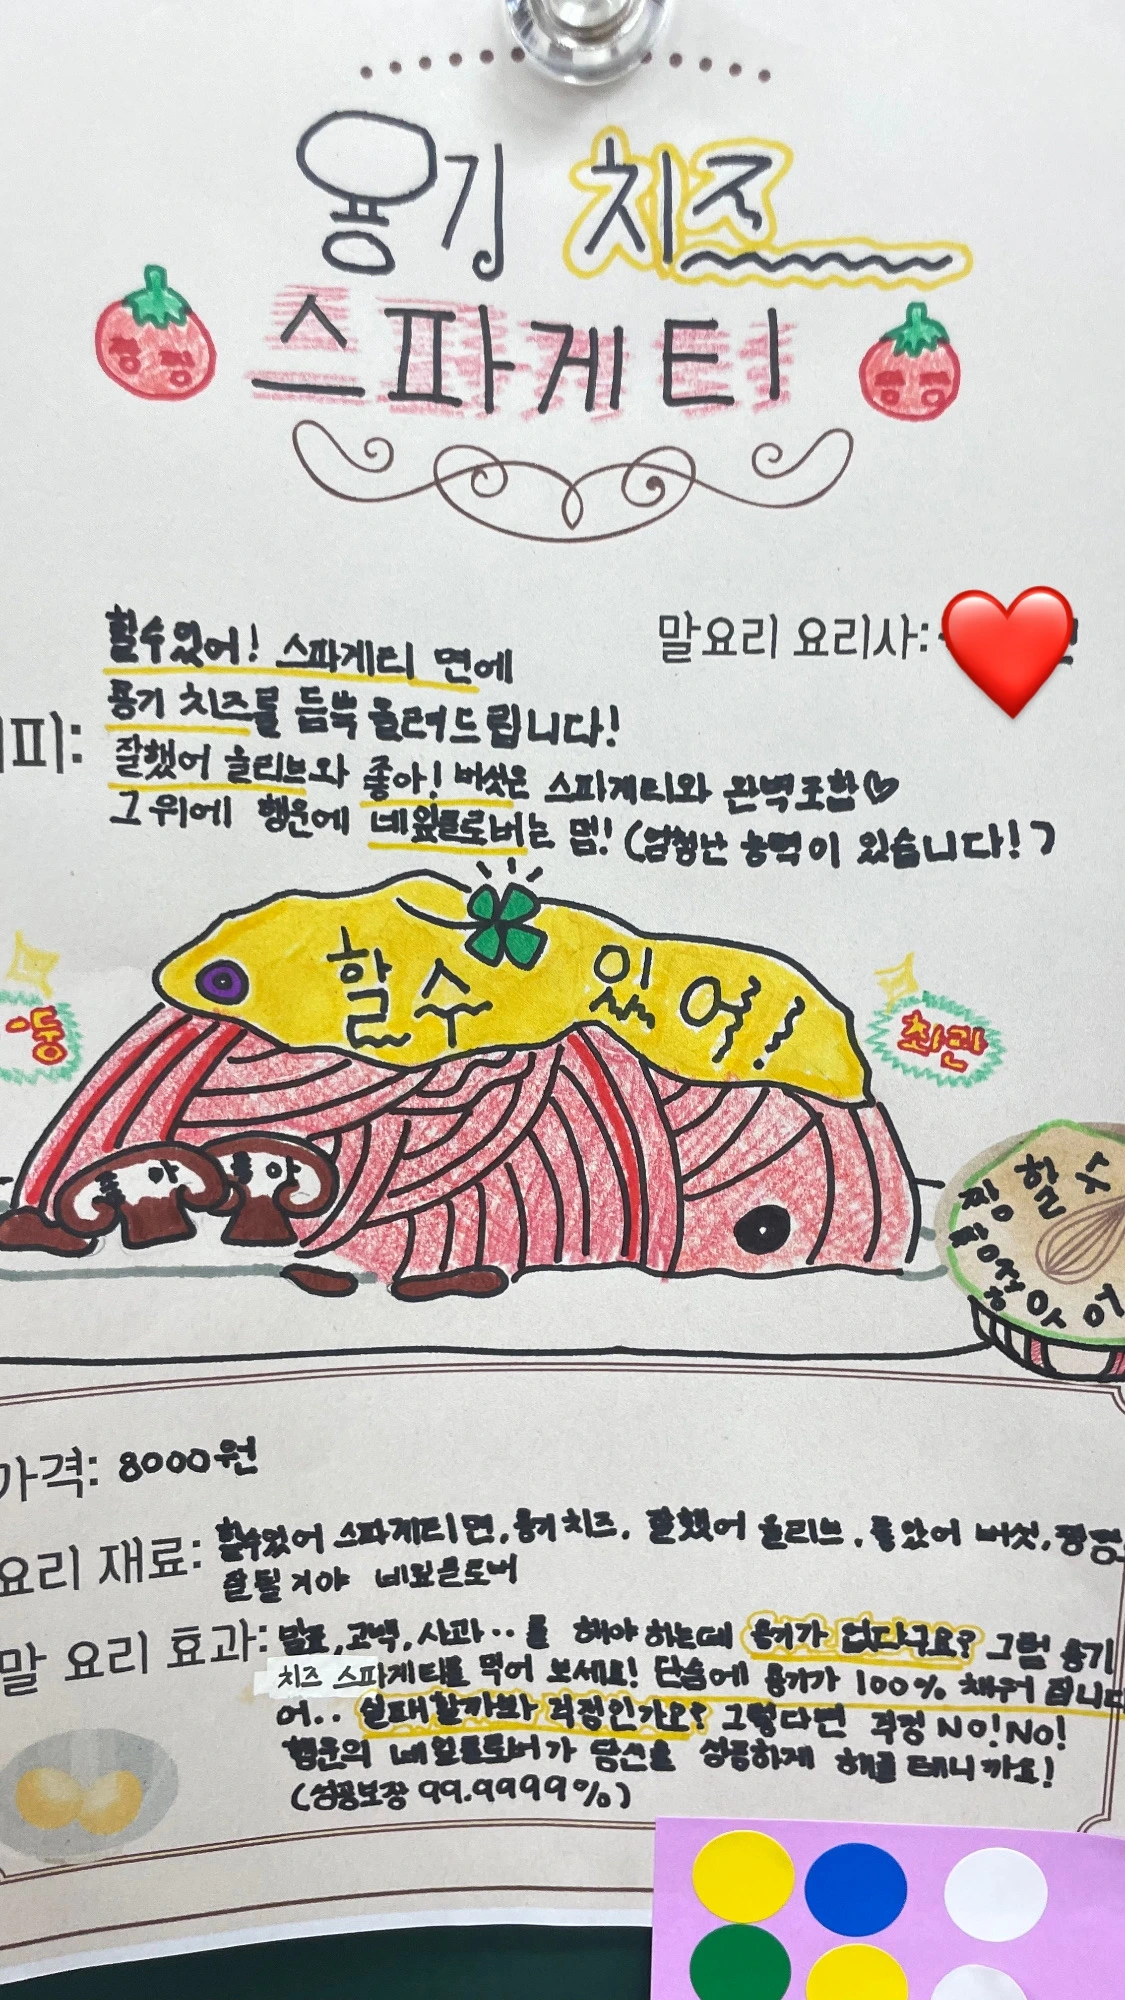 용기 치즈
스파게티
말요리 요리사:
할수있어! 스파게티 면에
피:
용기 치즈를 듬뿍 올려드립니다!
잘했어 올리브와 좋아! 버섯은 스파게티와 완벽조합♡
그 위에 행운에 네잎클로버는 덤! (엄청난 능력이 있습니다!)
할수 있어!
최관
좋아 좋아
할 수
가격: 8000원
요리 재료: 할수있어 스파게티면, 용기 치즈, 잘했어 올리브, 좋았어 버섯,
잘될거야 네잎클로버
말 요리 효과: 발표, 고백, 사과..를 해야 하는데 용기가 없다구요? 그럼 용기
치즈 스파게티를 먹어 보세요! 단숨에 용기가 100% 채워 집니다
어.. 실패할까봐 걱정인가요? 그렇다면 걱정 NO! NO!
행운의 네잎클로버가 당신을 성공하게 해줄 테니까요!
(성공보장 99.9999%)